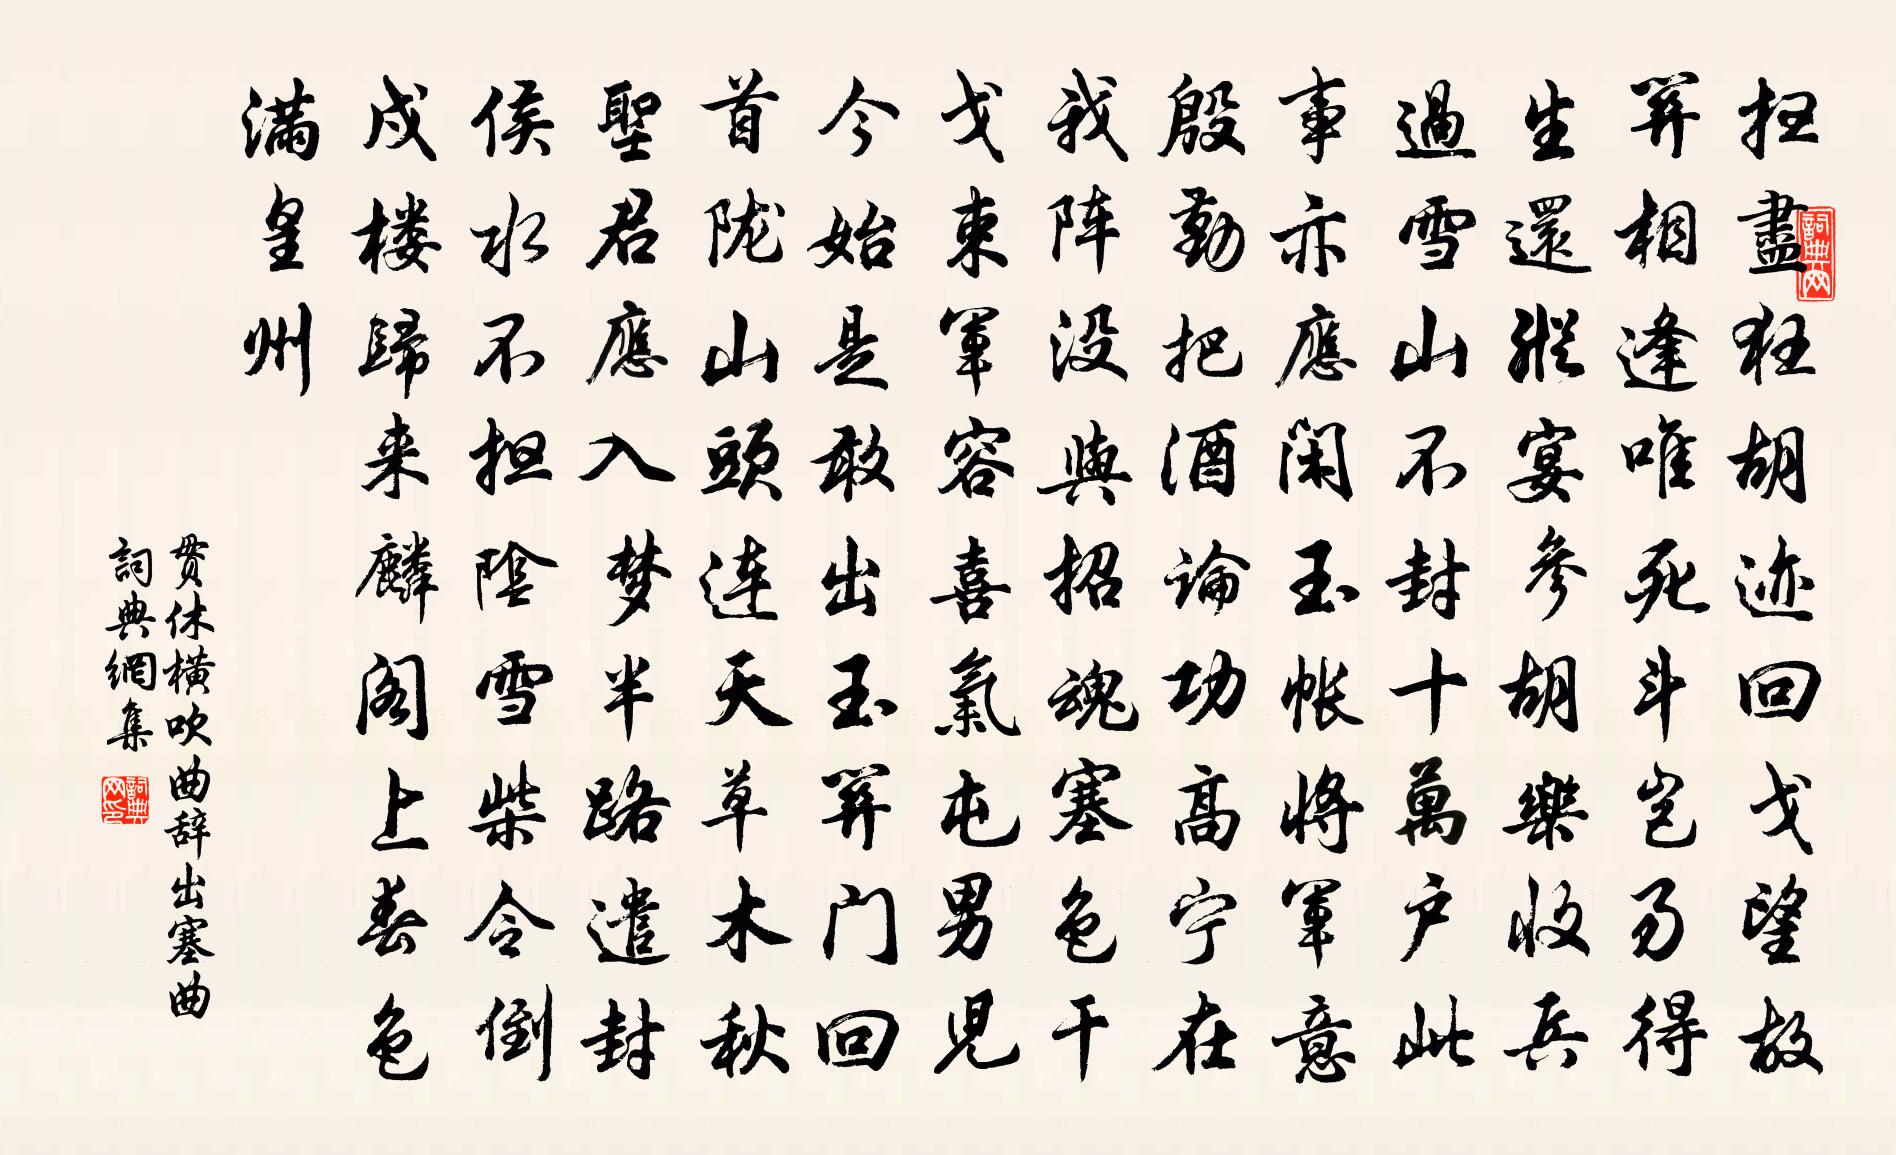 扫盡狂胡迹回戈望故
関相逢唯死斗岂易得
生還縱宴参胡樂收兵
過雪山不封十萬户此
事亦應闲玉帐将軍意
殷勤把酒論功高宁在
我阵没與招魂塞色干
戈束軍容喜氣屯男児
今始是敢出玉関门回
首陇山頭连天草木秋
聖君應入梦半路遣封
侯水不担陰雪柴令倒
戍楼歸来麟阁上春色
满皇州
贯休横吹曲辞出塞曲
詞典網集
詞典网
詞典网印